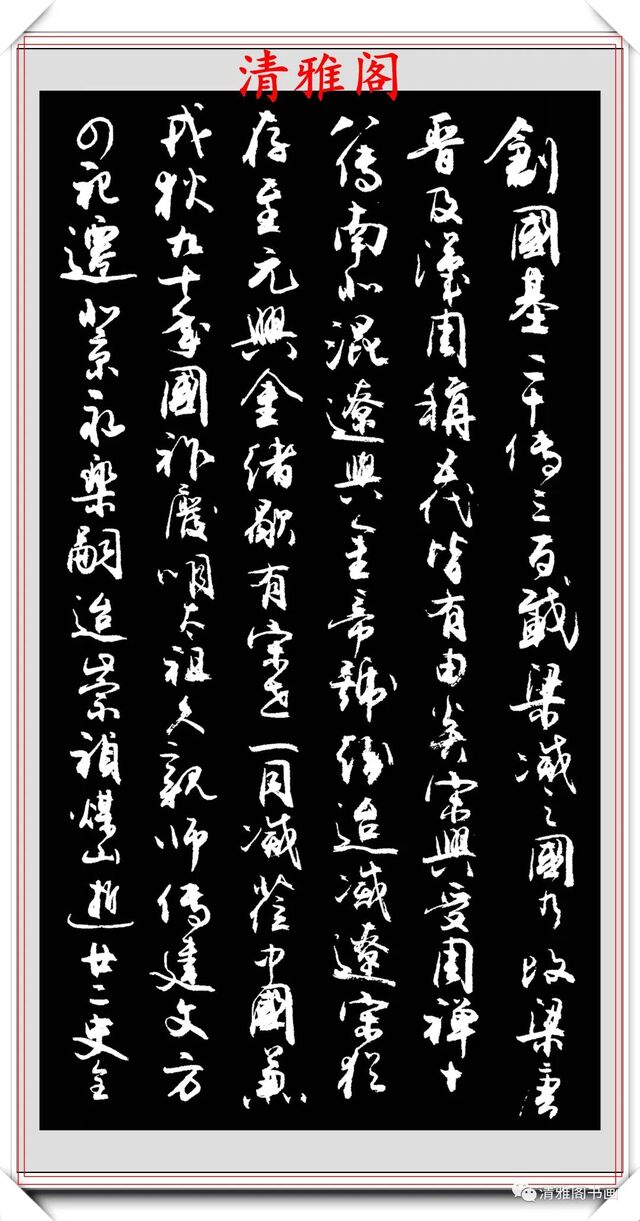 清雅阁
創國基二十傳三百載梁滅之國乃改梁唐
晉及漢周稱五代皆有由炎宋興受周禪十
八傳南北混遼與金帝號紛迨滅遼宋猶
存至元興金緒歇有宋世一同滅莅中國兼
戎狄九十年國祚廢明太祖久親師傳建文方
四祀遷北京永樂嗣迨崇禎煤山逝廿二史全
清雅阁书画